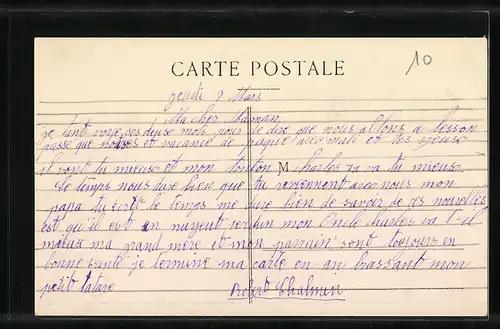 10
CARTE POSTALE
jeudi 2 Mars
Ma cher Maman
je tant voye ses deuse mots pour te dire que nous allons a
passe que nous et vacance de paque avec et les
il vont tu mieuse et mon tonton M Charles va tu mieus
le temps nous dure bien que tu reviennent avec nous mon
papa tu le temps me dure bien de savoir de ces nouvelles
est qu'il est mon Oncle charles va t-il
mieux ma grand mère et mon parrain sont toujours en
bonne santé je termine ma carte en an brassant mon
petit tatare
Robert Chalmin